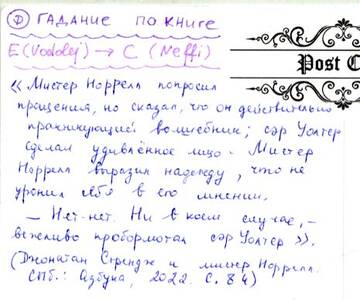 Ⓓ ГАДАНИЕ ПО КНИГЕ
E (Vodolej) → C (Neffi)
Post C
«Мистер Норрелл попросил
прощения, но сказал, что он действительно
практикующий волшебник; сэр Уолтер
сделал удивлённое лицо. Мистер
Норрелл выразил надежду, что не
уронил себя в его мнении.
– Нет-нет. Ни в коем случае, –
вежливо пробормотал сэр Уолтер».
(Джонатан Стрендж и мистер Норрелл.
СПб.: Азбука, 2022. С. 84)